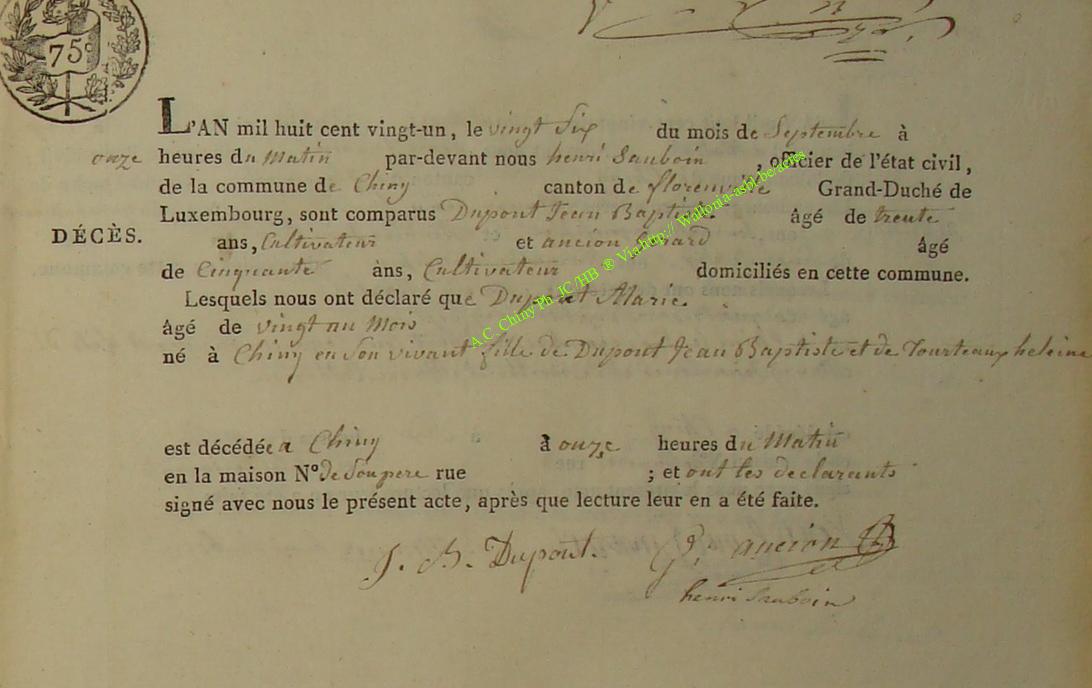 75c
L'AN mil huit cent vingt-un, le vingt Six du mois de Septembre à
onze heures du Matin par-devant nous henri Sauboin, officier de l'état civil,
de la commune de Chiny canton de florenville Grand-Duché de
Luxembourg, sont comparus Dupont Jean Baptiste. âgé de trente
DÉCÈS.
ans, Cultivateur et ancion Gérard âgé
de Cinquante ans, Cultivateur domiciliés en cette commune.
Lesquels nous ont déclaré que Dupont Marie.
âgé de vingt un Mois
né à Chiny en Son vivant fille de Dupont Jean Baptiste et de Tourteaux heleine
est décédée a Chiny à onze heures du Matin
en la maison N° de Soupere rue ; et ont les declarants
signé avec nous le présent acte, après que lecture leur en a été faite.
J. B. Dupont. G. ancion
henri Sauboin
A.C. Chiny Ph JC/HB ® Via http:// Wallonia-asbl.be/actes